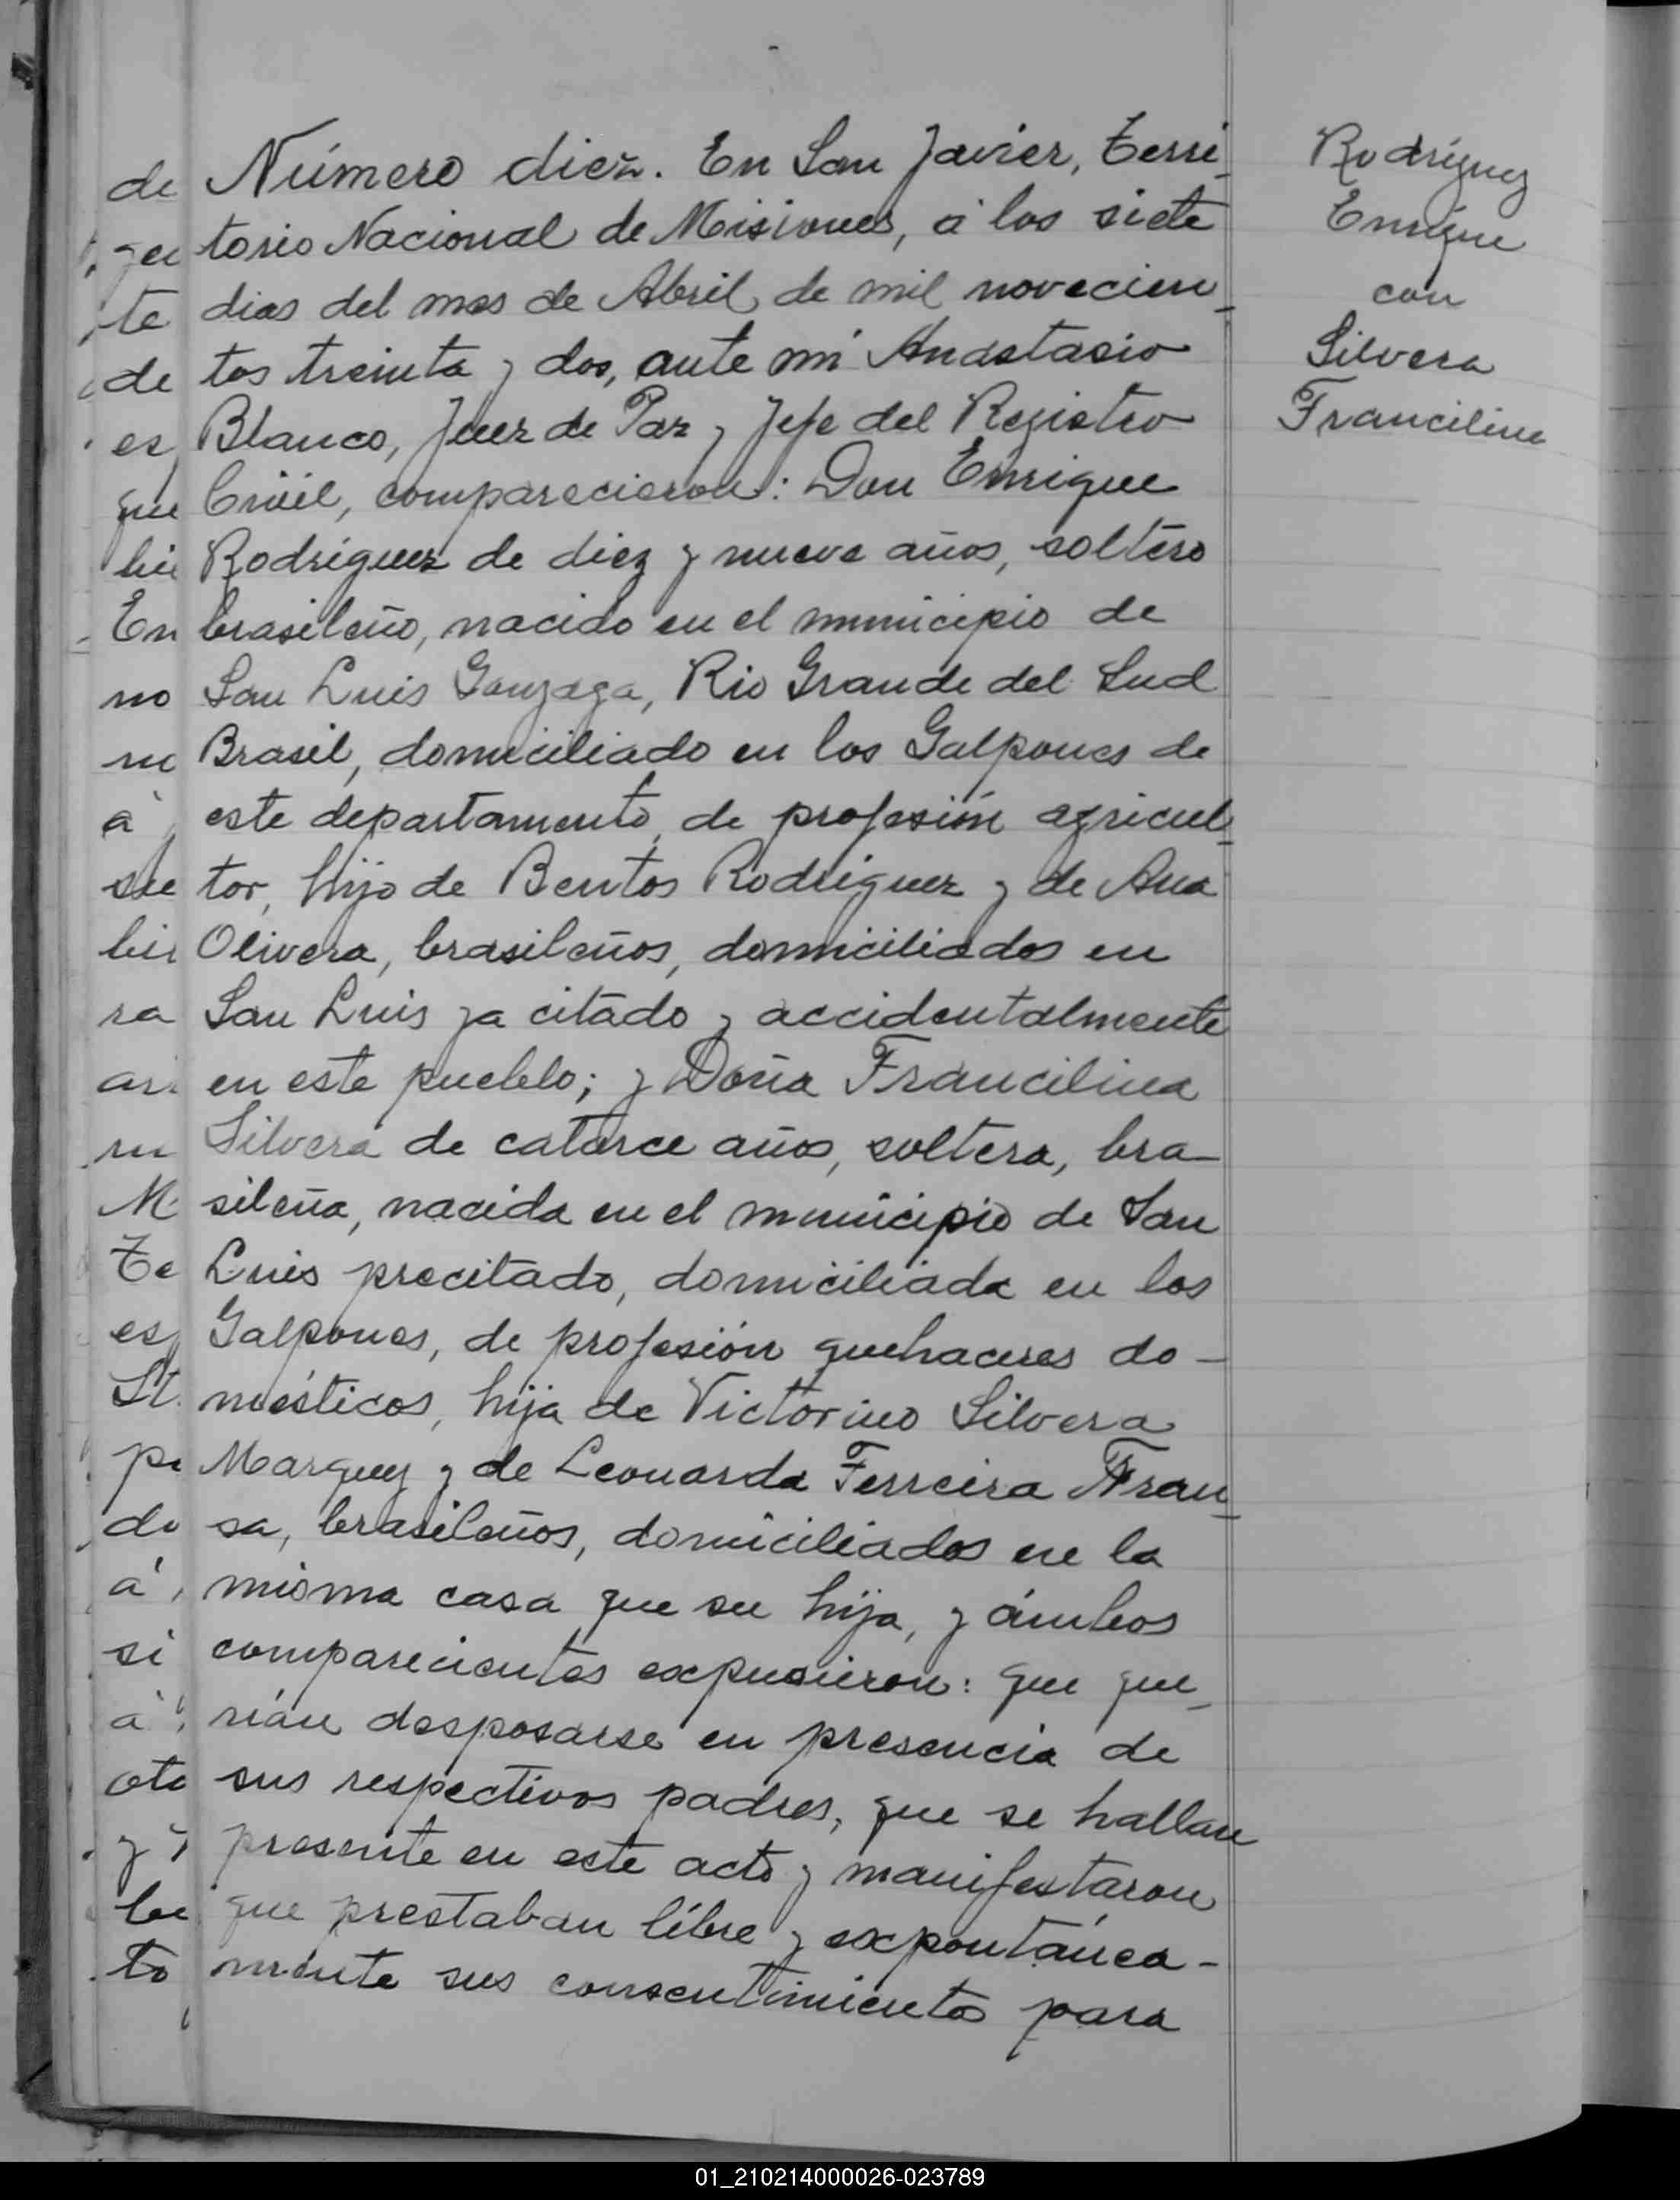 Número diez. En San Javier, Terri-
torio Nacional de Misiones, á los siete
dias del mes de Abril de mil novecien-
tos treinta y dos, ante mi Anastasio
Blanco, Juez de Paz y Jefe del Registro
Civil, comparecieron: Don Enrique
Rodriguez de diez y nueve años, soltero
brasileño, nacido en el municipio de
San Luis Gonzaga, Rio Grande del Sud
Brasil, domiciliado en los Galpones de
este departamento, de profesión agricul-
tor, hijo de Bentos Rodriguez y de Ana
Olivera, brasileños, domiciliados en
San Luis ya citado y accidentalmente
en este pueblo; y Doña Francilina
Silvera de catorce años, soltera, bra-
sileña, nacida en el municipio de San
Luis precitado, domiciliada en los
Galpones, de profesión quehaceres do-
mésticos, hija de Victorino Silvera
Marquez y de Leonarda Ferreira Fran-
sa, brasileños, domiciliados en la
misma casa que su hija, y ámbos
comparecientes expusieron: que que-
rián desposarse en presencia de
sus respectivos padres, que se hallan
presente en este acto y manifestaron
que prestaban libre y expontánea-
mente sus consentimientos para
Rodríguez
Enrique
con
Silvera
Francilina
de
te
de
es
que
En
no
su
ra
M
Te
es
do
á
si
á
to
01_210214000026-023789